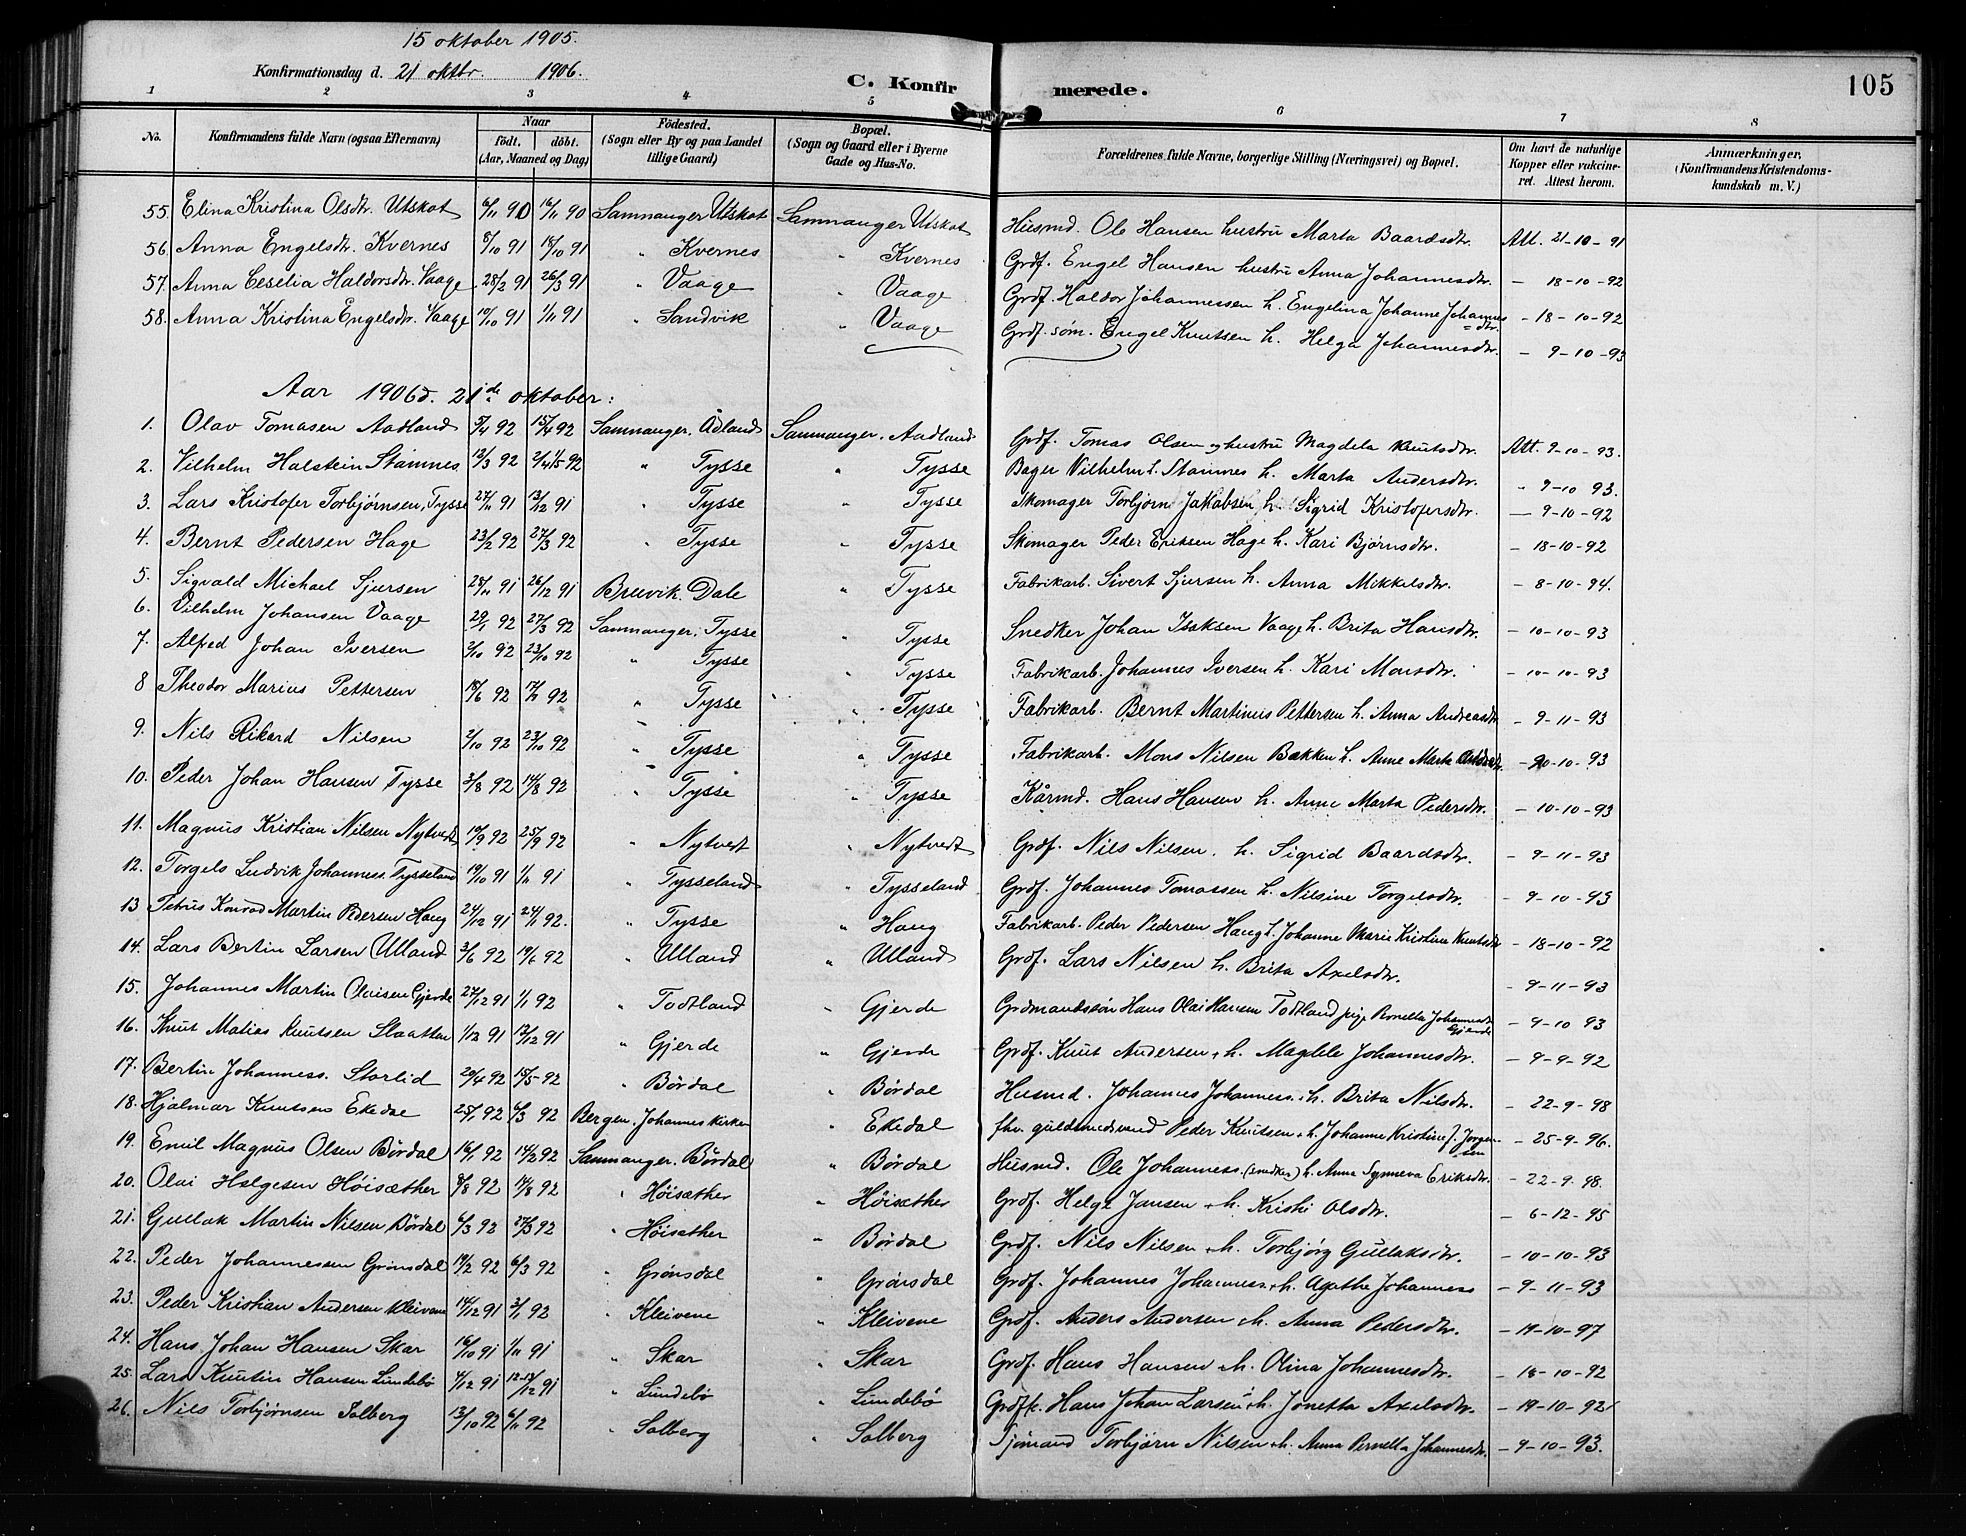 15 oktober 1905.
Konfirmationsdag d. 21 oktbr. 1906.
C. Konfirmerede.
105
1 2 3 4 5 6 7 8
No. | Konfirmandens fulde Navn (ogsaa Efternavn) | Naar födt. döbt. (Aar, Maaned og Dag) | Födested. (Sogn eller By og paa Landet tillige Gaard) | Bopæl. (Sogn og Gaard eller i Byerne Gade og Hus-No. | Forældrenes fulde Navne, borgerlige Stilling (Næringsvei) og Bopæl. | Om havt de naturlige Kopper eller vaccineret. Attest herom. | Anmærkninger. (Konfirmandens Kristendomskundskab m. V.)
55. Elina Kristina Olsdtr. Utskot 6/11 90 16/11 90 Samnanger Utskot Samnanger Utskot Husmd. Ole Hansen hustru Marta Baardsdtr. Att. 21-10-91
56. Anna Engelsdtr. Kvernes 8/10 91 18/10 91 " Kvernes " Kvernes Grdf. Engel Hansen hustru Anna Johannesdtr. - 18-10-92
57. Anna Cesilia Haldorsdtr. Vaage 28/2 91 26/3 91 " Vaage " Vaage Grdf. Haldor Johannessen h. Engelina Johanne Johannesdtr. - 18-10-92
58. Anna Kristina Engelsdtr. Vaage 10/10 91 1/11 91 " Sandvik " Vaage Grdf. søm. Engel Knutsen h. Helga Johannesdtr. - 9-10-93
Aar 1906 d. 21de oktober:
1. Olav Tomasen Aadland 5/4 92 15/4 92 Samnanger, Ådland Samnanger. Aadland Grdf. Tomas Olsen og hustru Magdela Knutsdtr. Att. 9-10-93.
2. Vilhelm Halstein Stamnes 12/3 92 2/4 1/5 92 " Tysse " Tysse Bager Vilhelm L. Stamnes h. Marta Andersdtr. " 9-10 93.
3. Lars Kristofer Torbjørnsen, Tysse 27/11 91 13/12 91 " Tysse " Tysse Skomager Torbjørn Jakobsen, h. Sigrid Kristofersdtr. - 9-10-92
4. Bernt Pedersen Hage 23/2 92 27/3 92 " Tysse " Tysse Skomager Peder Eriksen Hage h. Kari Bjørnsdtr. - 18-10-92
5. Sigvald Michael Sjursen 28/11 91 26/12 91 Bruvik. Dale " Tysse Fabrikarb. Sivert Sjursen h. Anna Mikkelsdtr. - 8-10-94.
6. Vilhelm Johansen Vaage 29/1 92 27/3 92 Samnanger, Tysse " Tysse Snedker Johan Isaksen Vaage h. Brita Hansdtr. - 10-10-93
7. Alfred Johan Iversen 2/10 92 23/10 92 " Tysse " Tysse Fabrikarb. Johannes Iversen h. Kari Monsdtr. - 10-10-93
8 Theodor Marius Pettersen 18/6 92 17/7 92 " Tysse " Tysse Fabrikarb. Bernt Martinus Pettersen h. Anna Andreasdtr - 9-11-93
9. Nils Rikard Nilsen 2/10 92 23/10 92 " Tysse " Tysse Fabrikarb. Mons Nilsen Bakken h. Anne Marta - 10-10-93
10. Peder Johan Hansen Tysse 3/8 92 14/8 92 " Tysse " Tysse Kårmd. Hans Hansen h. Anne Marta Pedersdtr. - 10-10-93
11. Magnus Kristian Nilsen Nytvedt 10/9 92 25/9 92 " Nytvedt " Nytvedt Grdf. Nils Nilsen. h. Sigrid Baardsdtr. - 9-11-93
12. Torgels Ludvik Johanness. Tysseland 19/10 91 1/11 91 " Tysseland " Tysseland Grdf. Johannes Tomassen h. Nilsine Torgelsdtr. - 9-10-93
13 Petrus Konrad Martin Pedersen Haug 24/12 91 24/1 92. " Tysse " Haug Fabrikarb. Peder Pedersen Haug h. Johanne Marie Kristine Knutsdtr - 18-10-92
14. Lars Bertin Larsen Ulland 3/6 92 19/6 92 " Ulland " Ulland Grdf. Lars Nilsen h. Brita Axelsdtr. - 9-11-93
15. Johannes Martin Olaisen Gjerde 27/12 91 1/1 92 " Todtland " Gjerde Grdmandssøn Hans Olai Hansen Todtland pige Pernella Johannesdtr Gjerde - 9-10 93
16. Knut Matias Knutsen Slaatten 1/12 91 13/12 91 " Gjerde " Gjerde Grdf. Knut Andersen + h. Magdele Johannesdtr. - 9-9-92
17. Bertin Johanness. Storlid 20/4 92 15/5-92 " Børdal " Børdal Husmd. Johannes Johanness. + h. Brita Nilsdtr. - 22-9-98
18. Hjalmar Knutsen Ekedal 25/1 92 6/3 92 Bergen. Johanneskirken " Ekedal fhv. guldsmedsvend Peder Knutsen + h. Johanne Kristine f. Jørgensen - 25-9-96.
19. Emil Magnus Olsen Børdal 16/1 92 14/2 92 Samnanger. Børdal " Børdal Husmd. Ole Johanness. (snedker) h. Anna Synneva Eriksdtr. - 22-9-98.
20. Olai Helgesen Høisæther 8/8 92 14/8 92 " Høisæther " Høisæther Grdf. Helge Jansen + h. Kristi Olsdtr. - 6-12-95
21. Gullak Martin Nilsen Børdal 6/3 92 27/3 92 " Høisæther " Børdal Grdf. Nils Nilsen + h. Torbjørg Gullaksdtr. - 10-10-93
22. Peder Johannessen Grønsdal 14/2 92 6/3 92 " Grønsdal " Grønsdal Grdf. Johannes Johanness. + h. Agathe Johanness - 9-11-93
23. Peder Kristian Andersen Kleivene 14/12 91 3/1 92 " Kleivene " Kleivene Grdf. Anders Andersen + h. Anna Pedersdtr. - 19-10-97
24. Hans Johan Hansen Skar 16/10 91 1/11 91 " Skar " Skar Grdf. Hans Hansen + h. Olina Johannesdtr. - 18-10-92
25. Lars Knutin Hansen Lundebø 4/12 91 12-13/12 91 " Lundebø " Lundebø Grdf. Hans Johan Larsen + h. Jonetta Axelsdtr. - 19-10-92
26. Nils Torbjørnsen Solberg 13/10 92 6/11 92 " Solberg " Solberg Sjømand Torbjørn Nilsen + h. Anna Pernella Johannesdtr - 9-10-93.